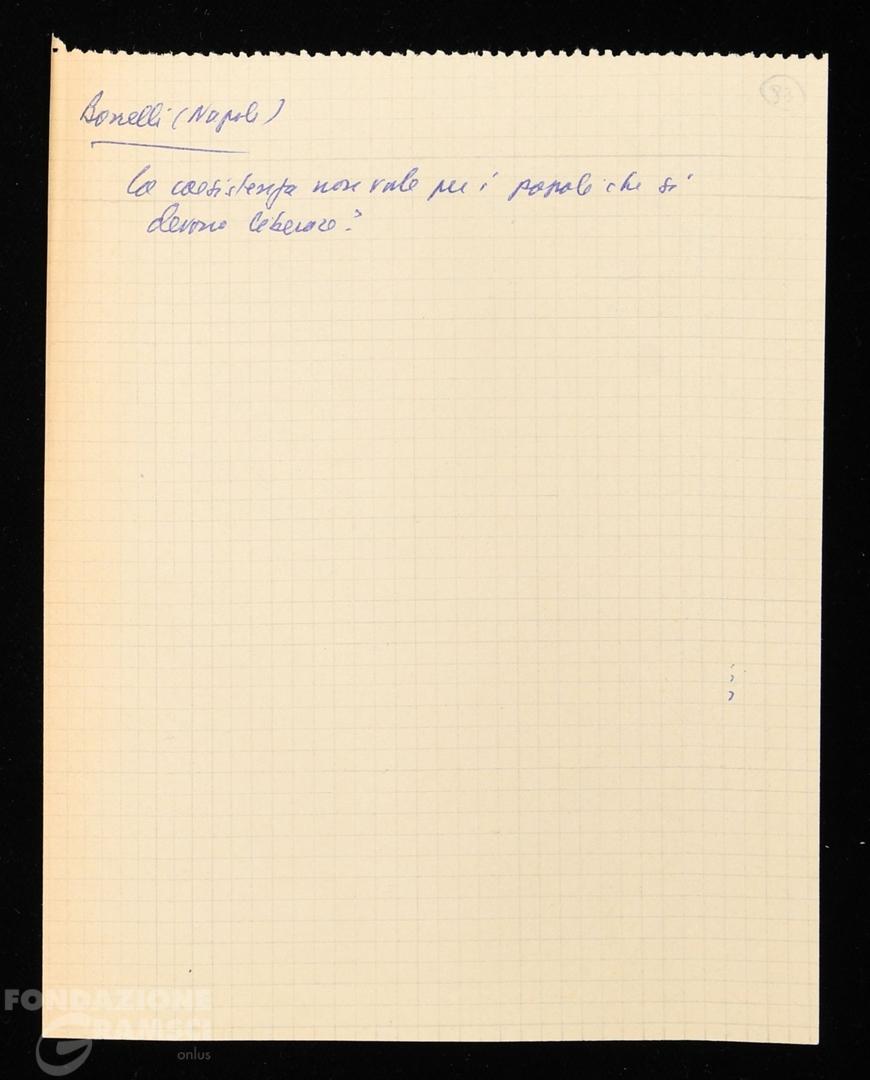 83
Borrelli (Napoli)
La coesistenza non vale per i popoli che si
devono liberare?
FONDAZIONE
GRAMSCI
onlus